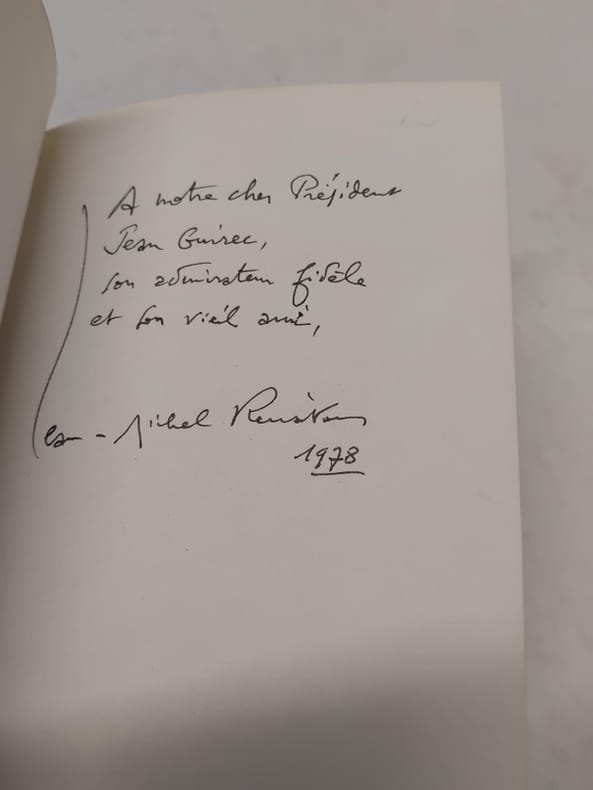 A notre cher Président
Jean Guirec,
son admirateur fidèle
et son vieil ami,
Jean-Michel Renaitour
1978